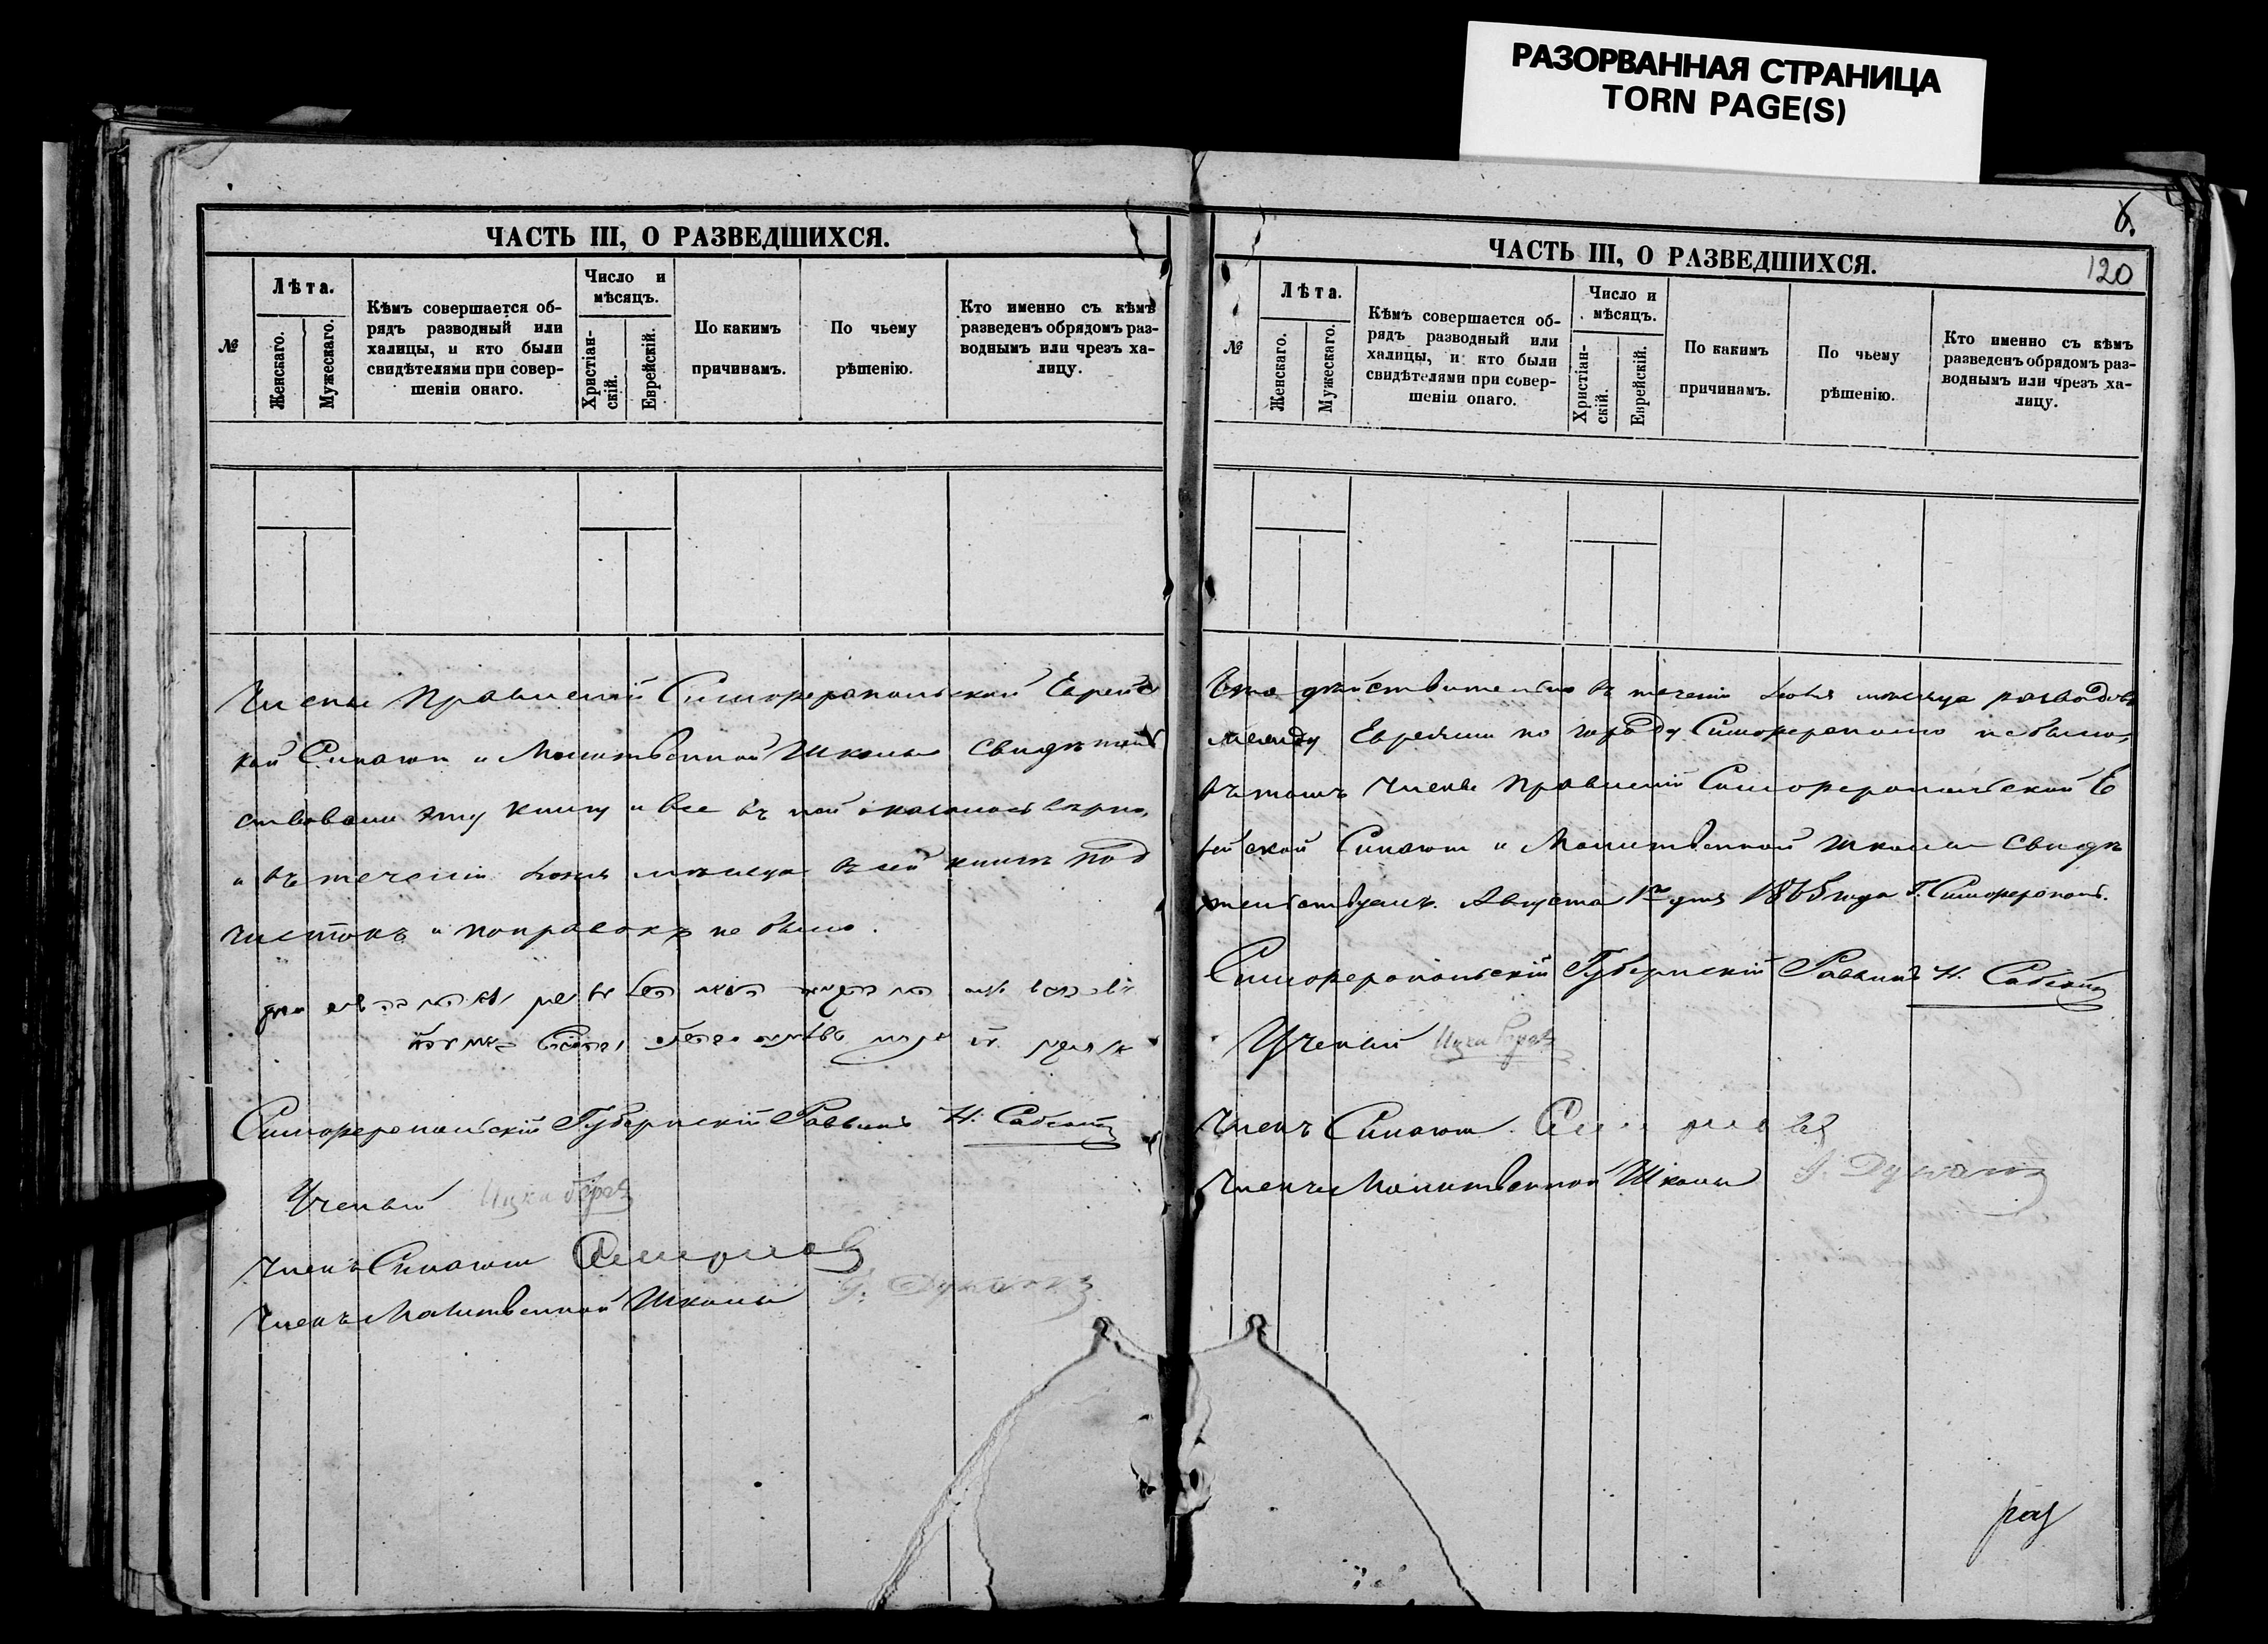 РАЗОРВАННАЯ СТРАНИЦА
TORN PAGE(S)
ЧАСТЬ III, О РАЗВЕДШИХСЯ.
№
Лѣта.
Женскаго.
Мужескаго.
Кѣмъ совершается об-
рядъ разводный или
халицы, и кто были
свидѣтелями при совер-
шеніи онаго.
Число и
мѣсяцъ.
Христіан-
скій.
Еврейскій.
По какимъ
причинамъ.
По чьему
рѣшенію.
Кто именно съ кѣмъ
разведенъ обрядомъ раз-
воднымъ или чрезъ ха-
лицу.
Члены Правленій Симферопольской Еврейс
кой Синагоги и Молитвенной Школы свидѣтель
ствовали эту книгу и все въ ней оказалось вѣрно,
и въ теченіи Іюля мѣсяца въ сей книгѣ под
чистокъ и поправокъ не было.
Симферопольскій Губернскій Раввинъ Н.
Ученый
Членъ Синагоги
Членъ Молитвенной Школы
6.
120
ЧАСТЬ III, О РАЗВЕДШИХСЯ.
№
Лѣта.
Женскаго.
Мужескаго.
Кѣмъ совершается об-
рядъ разводный или
халицы, и кто были
свидѣтелями при совер-
шеніи онаго.
Число и
мѣсяцъ.
Христіан-
скій.
Еврейскій.
По какимъ
причинамъ.
По чьему
рѣшенію.
Кто именно съ кѣмъ
разведенъ обрядомъ раз-
воднымъ или чрезъ ха-
лицу.
Что дѣйствительно въ теченіи Іюля мѣсяца разводовъ
между Евреями по городу Симферополю не было,
въ томъ Члены Правленій Симферопольской Е
врейской Синагоги и Молитвенной Школы свидѣ
тельствуемъ. Августа 1го дня 1865 года Г. Симферополь.
Симферопольскій Губернскій Раввинъ Н.
Ученый
Членъ Синагоги
Членъ Молитвенной Школы
раз